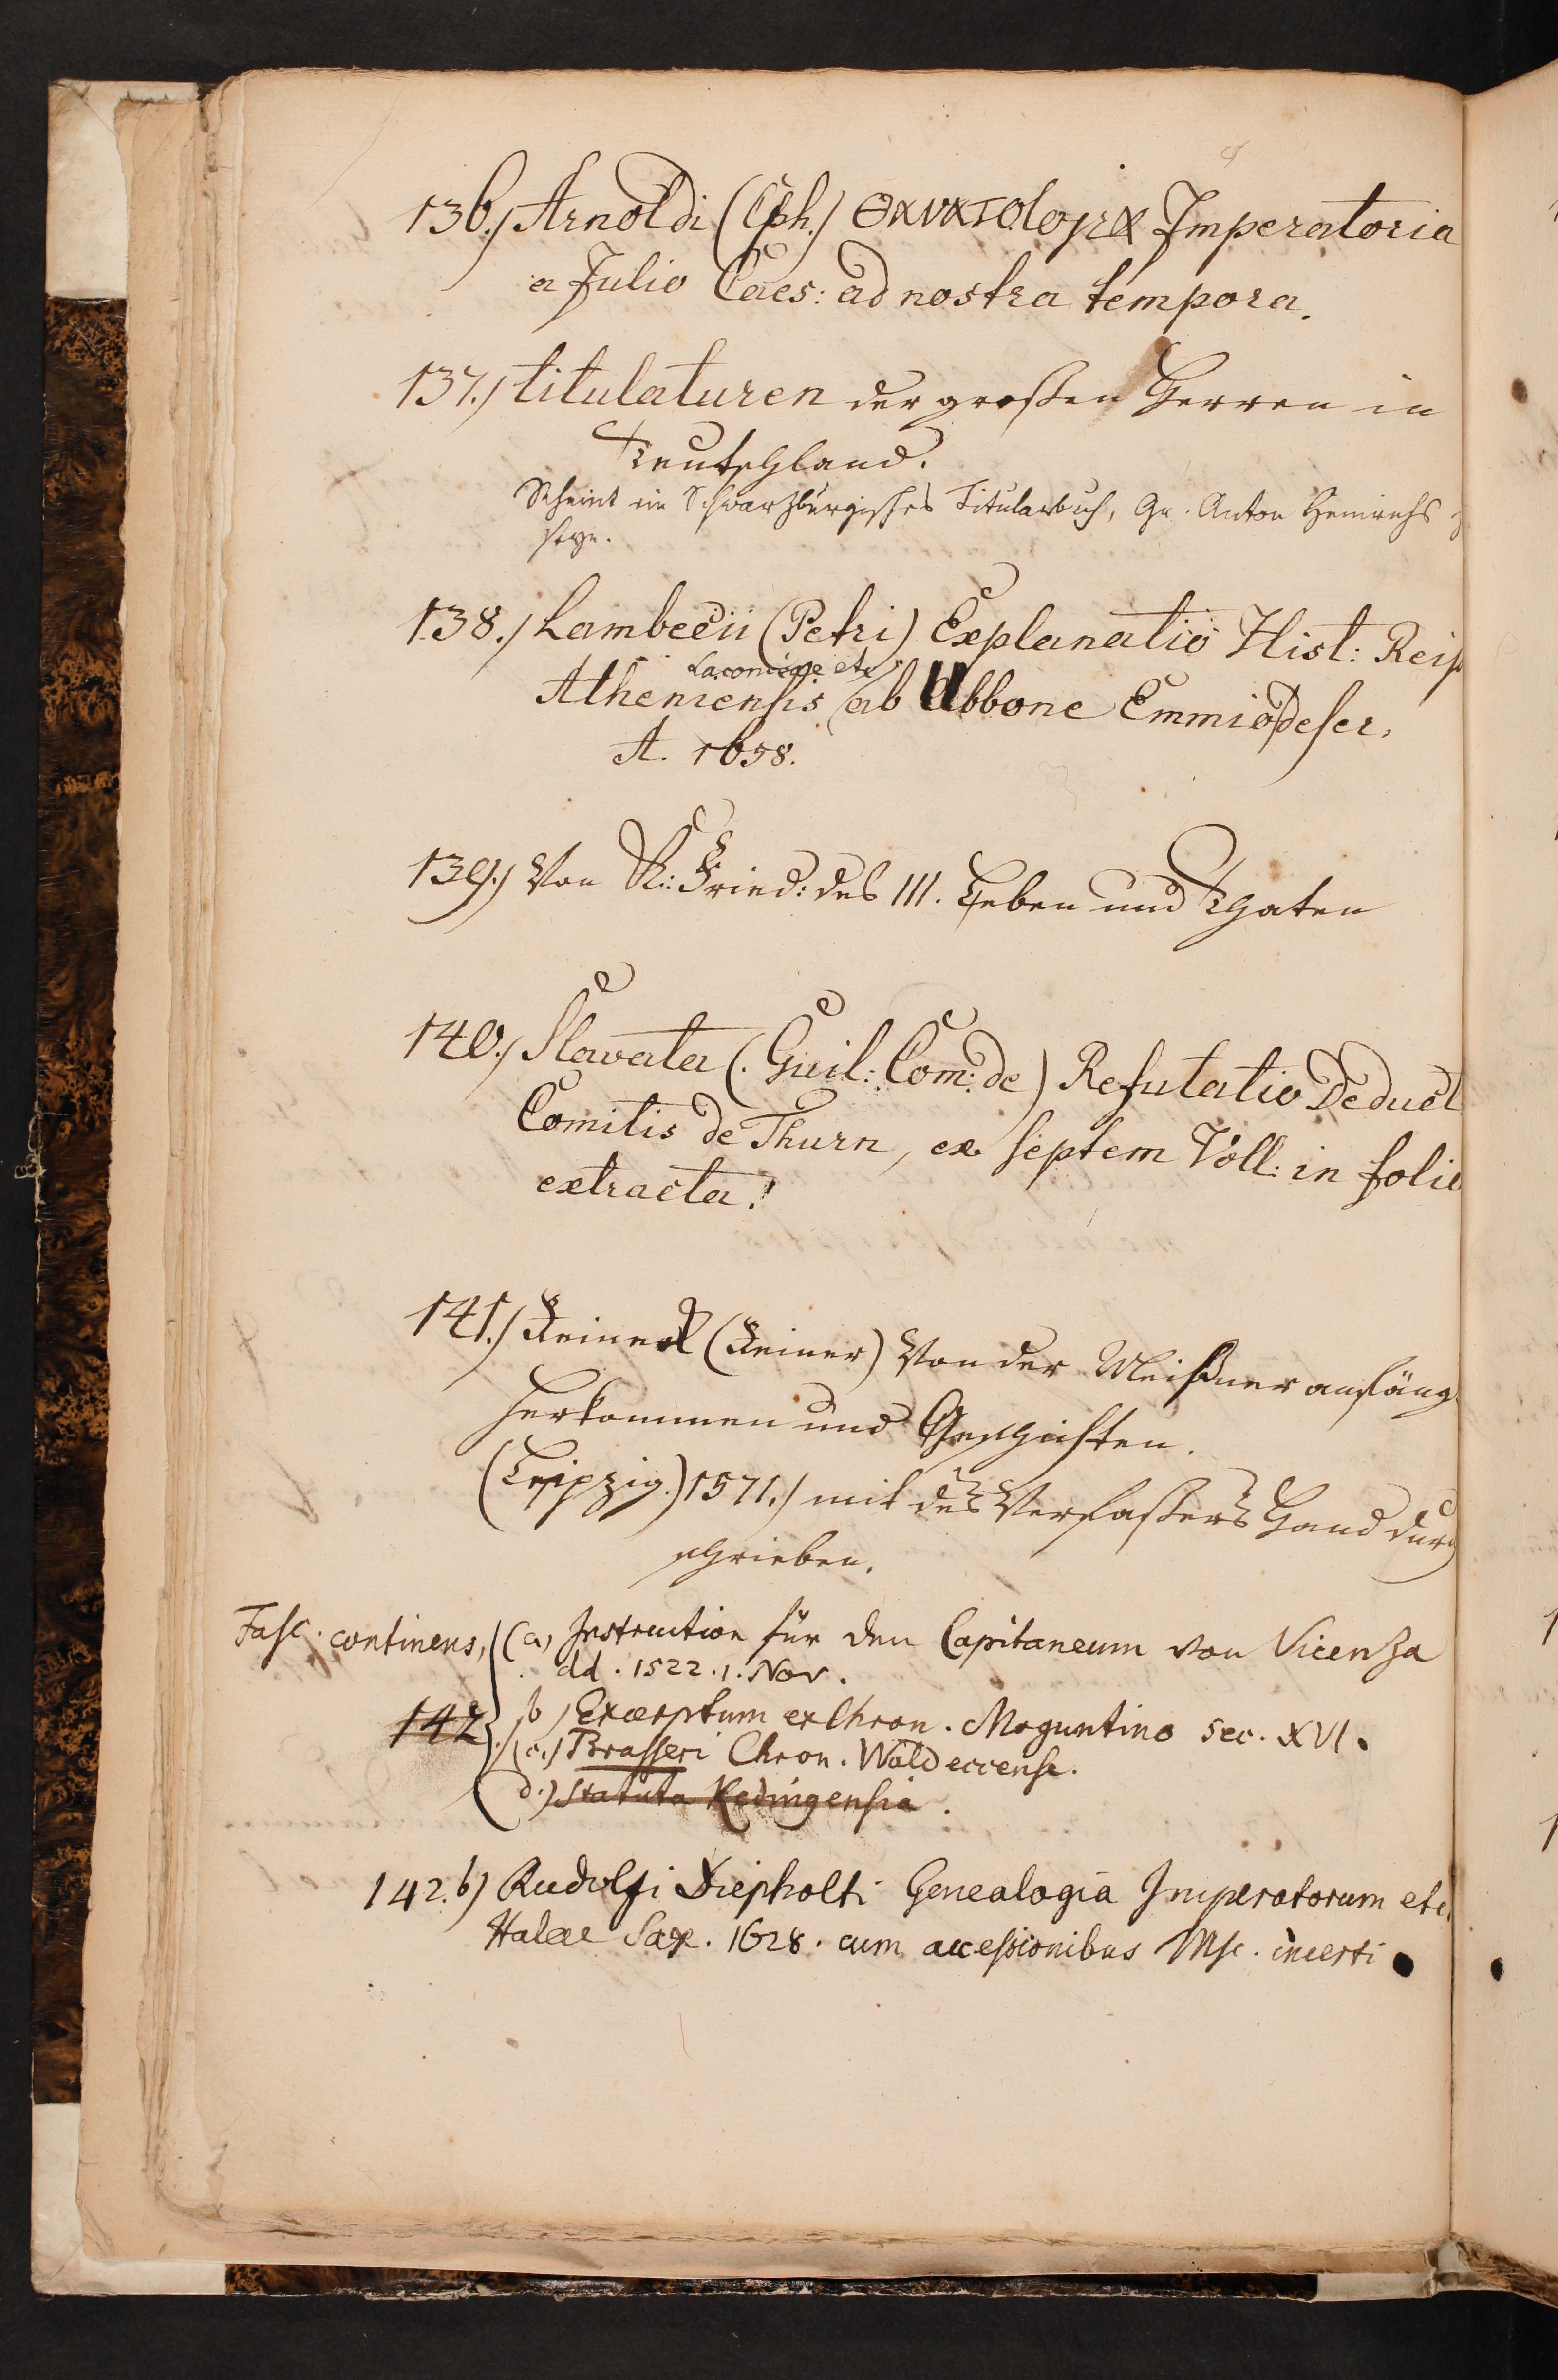 136.) Arnoldi (Cph.) Θανατολογια Imperatoria
a Julio Caes: ad nostra tempora.
137.) titulaturen der großen Herren in
Teutschland.
Scheint ein Schwarzburgisches Titularbuch, Gr. Anton Heinrichs
seyn.
138.) Lambecii (Petri) Explanatio Hist: Reip
Laconicae etc
Atheniensis ab Ubbone Emmio descr.
A. 1658.
139.) Von K: Fried: des III. Leben und Thaten
140.) Slavata (Guil: Com: de) Refutatio Deduct
Comitis de Thurn, ex septem Voll: in folio
extracta.
141.) Reineck (Reiner) Von der Meißner anfäng
herkommen und Geschichten.
(Leipzig.) 1571.) mit des Verfaßers Hand durch
schrieben.
Fasc. continens, (a, Instruction für den Capitaneum von Vicenza
dd. 1522. 1. Nov.
142. b) Excerptum ex Chron. Moguntino sec. XVI.
(c.) Prasseri Chron. Waldeccense.
(d.) Statuta Kedingensia.
142.b) Rudolfi Diepholti Genealogia Imperatorum etc.
Halae Sax. 1628. cum accessionibus Msc. incerti